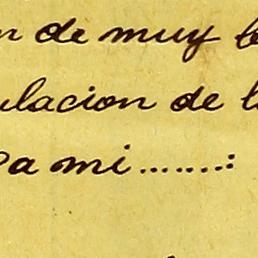 n de muy le
ulacion de l
a mi.......: